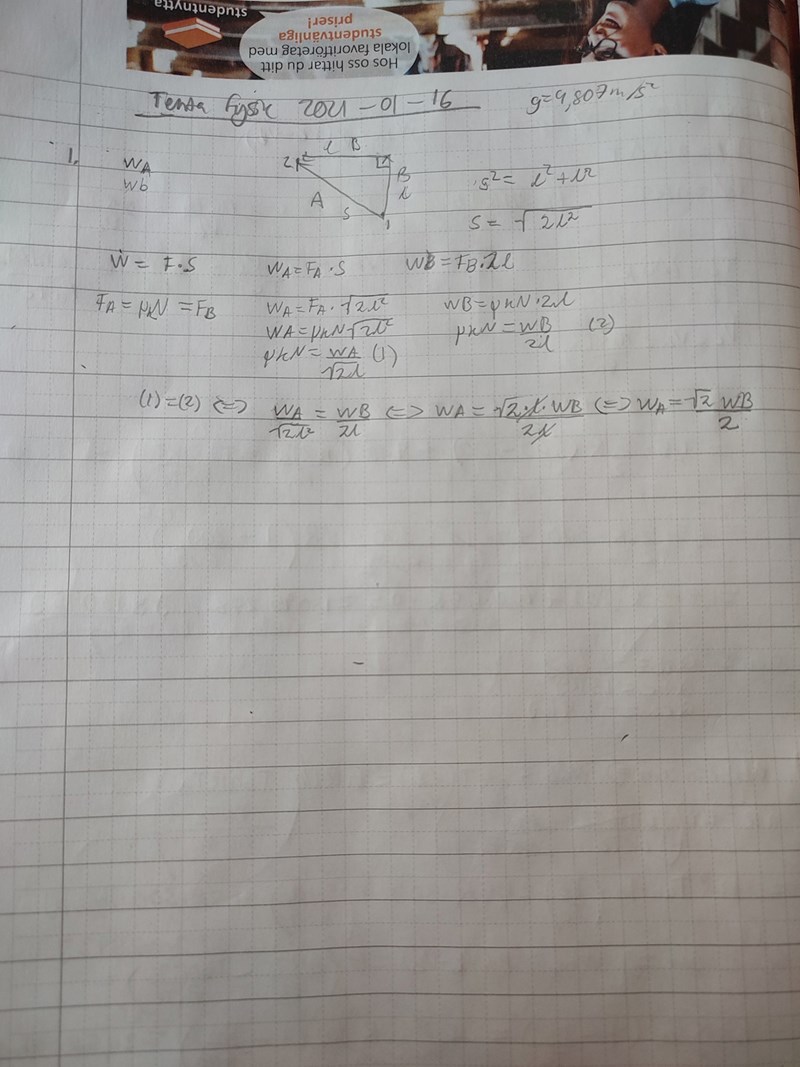 studentnytta
Hos oss hittar du ditt
lokala favoritföretag med
studentvänliga
priser!
Tenta Fysik 2021-01-16
g=9,807m/s²
1.
WA
Wb
l B
2
B
l
A
s
1
s² = l²+l²
s = √2l²
W = F·S WA=FA·S WB=FB·2l
FA=μkN=FB WA=FA·√2l² WB=μkN·2l
WA=μkN√2l² μkN=WB/2l (2)
μkN=WA/√2l (1)
(1)=(2) <=> WA/√2l² = WB/2l <=> WA=√2·l·WB/2l <=> WA=√2 WB/2